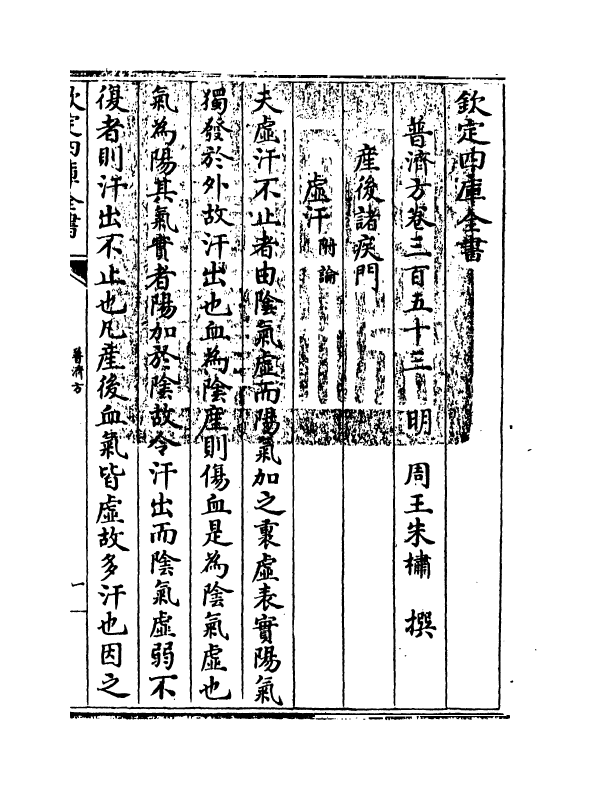 欽定四庫全書
普濟方卷三百五十三　明　周王朱橚　撰
產後諸疾門
虛汗附論
夫虛汗不止者由陰氣虛而陽氣加之裏虛表實陽氣
獨發於外故汗出也血為陰產則傷血是為陰氣虛也
氣為陽其氣實者陽加於陰故令汗出而陰氣虛弱不
復者則汗出不止也凡產後血氣皆虛故多汗也因之
欽定四庫全書
普濟方
一